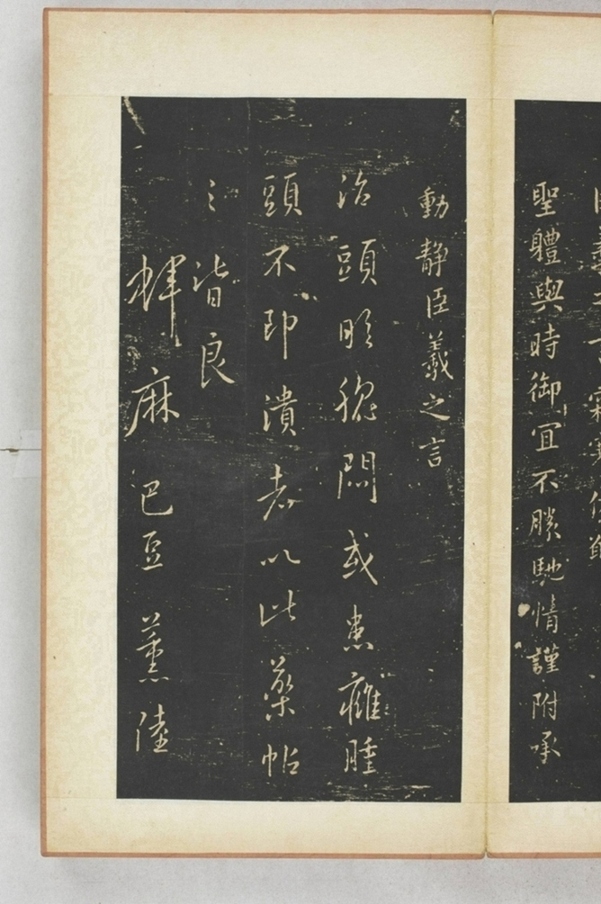 聖體與時御宜不勝馳情謹附承
動靜臣羲之言
治頭眩腦悶或患癰腫
頭不即潰者以此藥帖
之皆良
麻 巴豆 薰陸